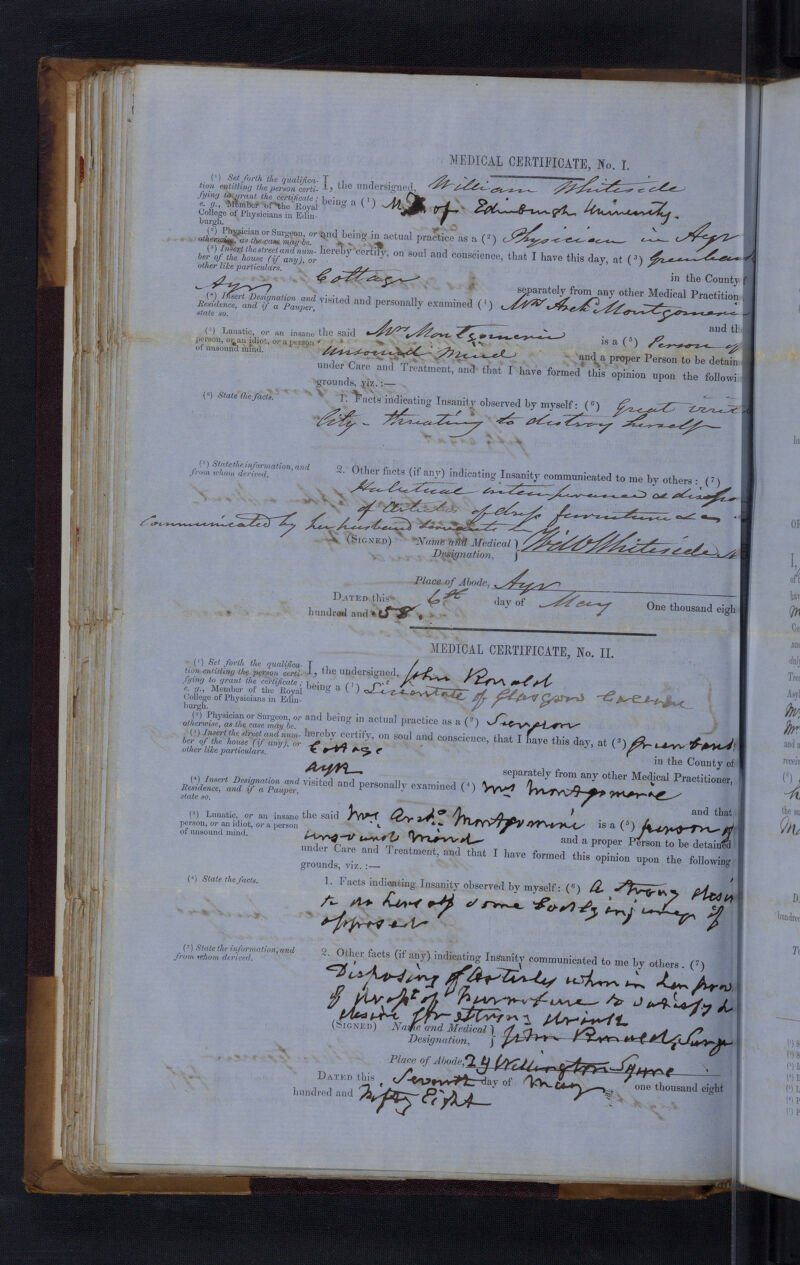 MEDICAL CERTIFICATE, No. I.
(¹) Set forth the qualifica-
tion entitling the person certi-
fying to grant the certificate;
e. g., Member of the Royal
College of Physicians in Edin-
burgh.
I, the undersigned, William Whiteside
being a (¹) M.D. of Edinburgh University.
(²) Physician or Surgeon, or
otherwise, as the case may be.
and being in actual practice as a (²) Physician in Ayr
(³) Insert the street and num-
ber of the house (if any), or
other like particulars.
hereby certify, on soul and conscience, that I have this day, at (³)
Cottage in the County
Ayr separately from any other Medical Practition
(⁴) Insert Designation and
Residence, and if a Pauper,
state so.
visited and personally examined (⁴) Mrs Archd Montgomerie
and th
(⁵) Lunatic, or an insane
person, or an idiot, or a person
of unsound mind.
the said Mrs Montgomerie is a (⁵) Person of
unsound mind and a proper Person to be detain
under Care and Treatment, and that I have formed this opinion upon the followi
grounds, viz. :—
(⁶) State the facts.
1. Facts indicating Insanity observed by myself: (⁶) Great
City - threating to destroy herself
(⁷) State the information, and
from whom derived.
2. Other facts (if any) indicating Insanity communicated to me by others : (⁷)
Habitual intemperance &
of articles of dress furniture &
Communicated by her husband
(SIGNED) Name and Medical
Designation, Whiteside
Place of Abode, Ayr
DATED this 6th day of May One thousand eigh
hundred and 58.
MEDICAL CERTIFICATE, No. II.
(¹) Set forth the qualifica-
tion entitling the person certi-
fying to grant the certificate;
e. g., Member of the Royal
College of Physicians in Edin-
burgh.
I, the undersigned, John Ronald
being a (¹) Licentiate of Glasgow
(²) Physician or Surgeon, or
otherwise, as the case may be.
and being in actual practice as a (²) Surgeon
(³) Insert the street and num-
ber of the house (if any), or
other like particulars.
hereby certify, on soul and conscience, that I have this day, at (³)
Cottage in the County of
Ayr separately from any other Medical Practitioner,
(⁴) Insert Designation and
Residence, and if a Pauper,
state so.
visited and personally examined (⁴) Mrs Montgomerie
and that
(⁵) Lunatic, or an insane
person, or an idiot, or a person
of unsound mind.
the said Mrs Archd Montgomerie is a (⁵) person of
unsound mind and a proper Person to be detained
under Care and Treatment, and that I have formed this opinion upon the following
grounds, viz. :—
(⁶) State the facts.
1. Facts indicating Insanity observed by myself: (⁶) A strong desire
to do herself some bodily injury if
opposed
(⁷) State the information, and
from whom derived.
2. Other facts (if any) indicating Insanity communicated to me by others. (⁷)
Disposing of
of furniture to satisfy
desire for strong drink
(SIGNED) Name and Medical
Designation, John Ronald, Surge
Place of Abode, 24 Wellington Square
DATED this Seventh day of May one thousand eight
hundred and Fifty Eight